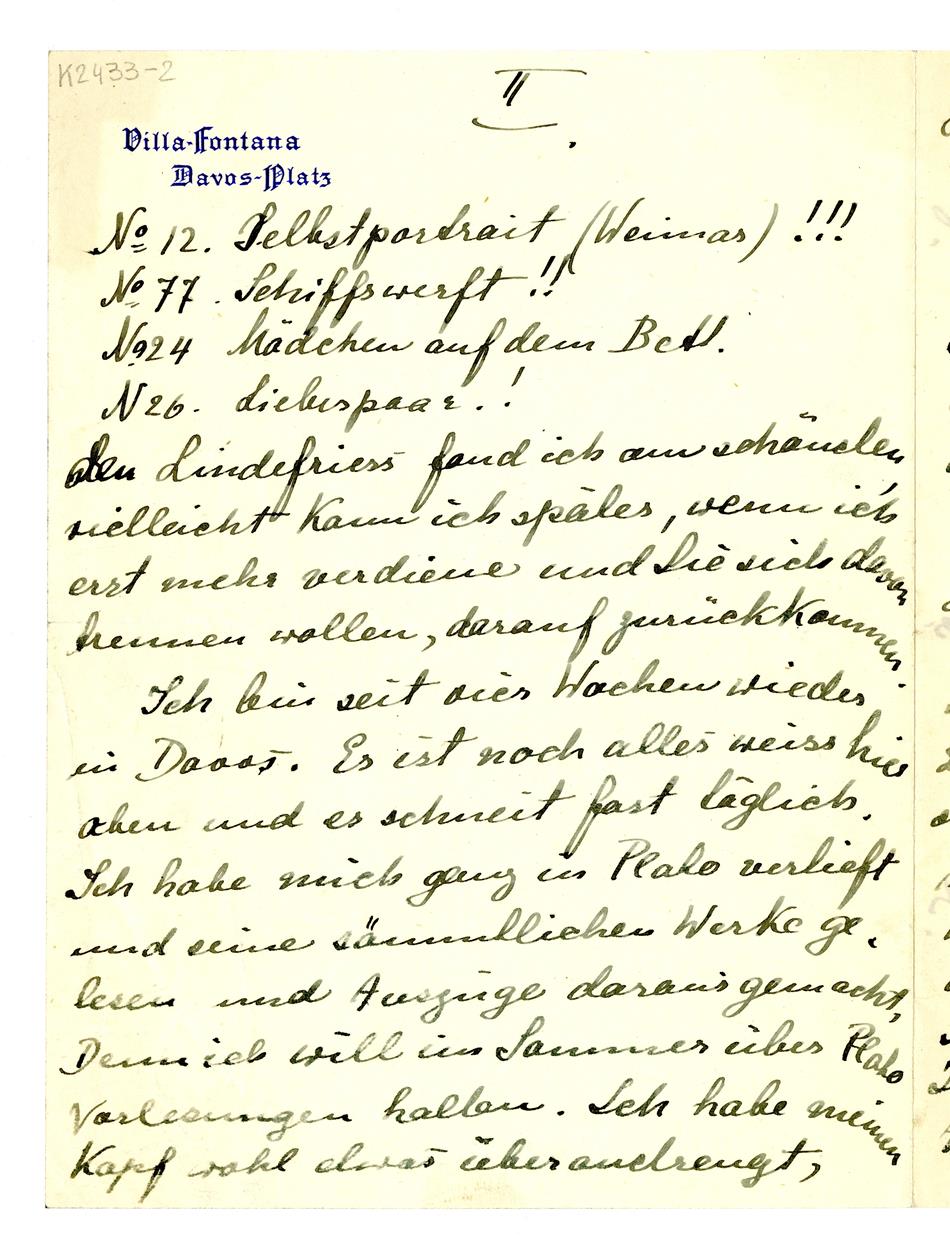 K2433-2
II.
Villa-Fontana
Davos-Platz
No 12. Selbstportrait (Weimar) !!!
No 77. Schiffswerft !!
No 24 Mädchen auf dem Bett.
N 26. Liebespaar. !
den Lindefriess fand ich am schönsten,
vielleicht kann ich später, wenn ich
erst mehr verdiene und Sie sich davon
trennen wollen, darauf zurückkommen.
Ich bin seit vier Wochen wieder
in Davos. Es ist noch alles weiss hier
oben und es schneit fast täglich.
Ich habe mich ganz in Plato vertieft
und seine sämmtlichen Werke ge-
lesen und Auszüge daraus gemacht,
Denn ich will im Sommer über Plato
Vorlesungen halten. Ich habe meinen
Kopf wohl etwas überanstrengt,